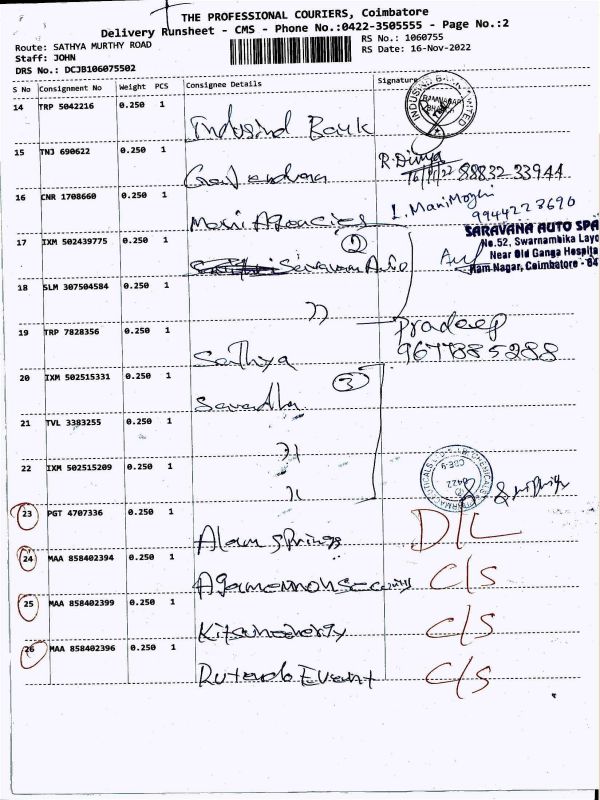 THE PROFESSIONAL COURIERS, Coimbatore
Delivery Runsheet - CMS - Phone No.:0422-3505555 - Page No.:2
Route: SATHYA MURTHY ROAD
Staff: JOHN
DRS No.: DCJB106075502
RS No.: 1060755
RS Date: 16-Nov-2022
S No Consignment No Weight PCS Consignee Details Signature
14 TRP 5042216 0.250 1 Indusind Bank
INDUSIND BANK LIMITED
15 TNJ 690622 0.250 1
R. Divya
16/11/22 88832 33944
16 CNR 1708660 0.250 1 Mani Agencies
L. ManiMoghi
9944223690
17 IXM 502439775 0.250 1 ② Saravana Auto
SARAVANA AUTO SPA
No.52, Swarnambika Layo
Near Old Ganga Hospita
Ram Nagar, Coimbatore - 64
18 SLM 307504584 0.250 1 ))
19 TRP 7828356 0.250 1 Sathya
pradeep
9677885288
20 IXM 502515331 0.250 1 ③
21 TVL 3383255 0.250 1 ))
22 IXM 502515209 0.250 1 ))
23 PGT 4707336 0.250 1 Alam springs D/L
24 MAA 858402394 0.250 1 Agamemnon Security C/S
25 MAA 858402399 0.250 1 C/S
26 MAA 858402396 0.250 1 Event C/S